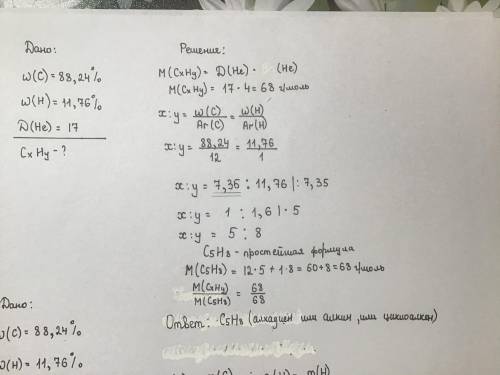 Дано:
ω(C) = 88,24%
ω(H) = 11,76%
D(He) = 17
CxHy - ?
Решение:
M(CxHy) = D(He) · (He)
M(CxHy) = 17 · 4 = 68 г/моль
x:y = ω(C)/Ar(C) = ω(H)/Ar(H)
x:y = 88,24/12 = 11,76/1
x:y = 7,35 : 11,76 |: 7,35
x:y = 1 : 1,6 | · 5
x:y = 5 : 8
C5H8 - простейшая формула
M(C5H8) = 12·5 + 1·8 = 60+8 = 68 г/моль
M(CxHy)/M(C5H8) = 68/68
Ответ: C5H8 (алкадиен или алкин, или циклоалкен)
Дано:
ω(C) = 88,24%
ω(H) = 11,76